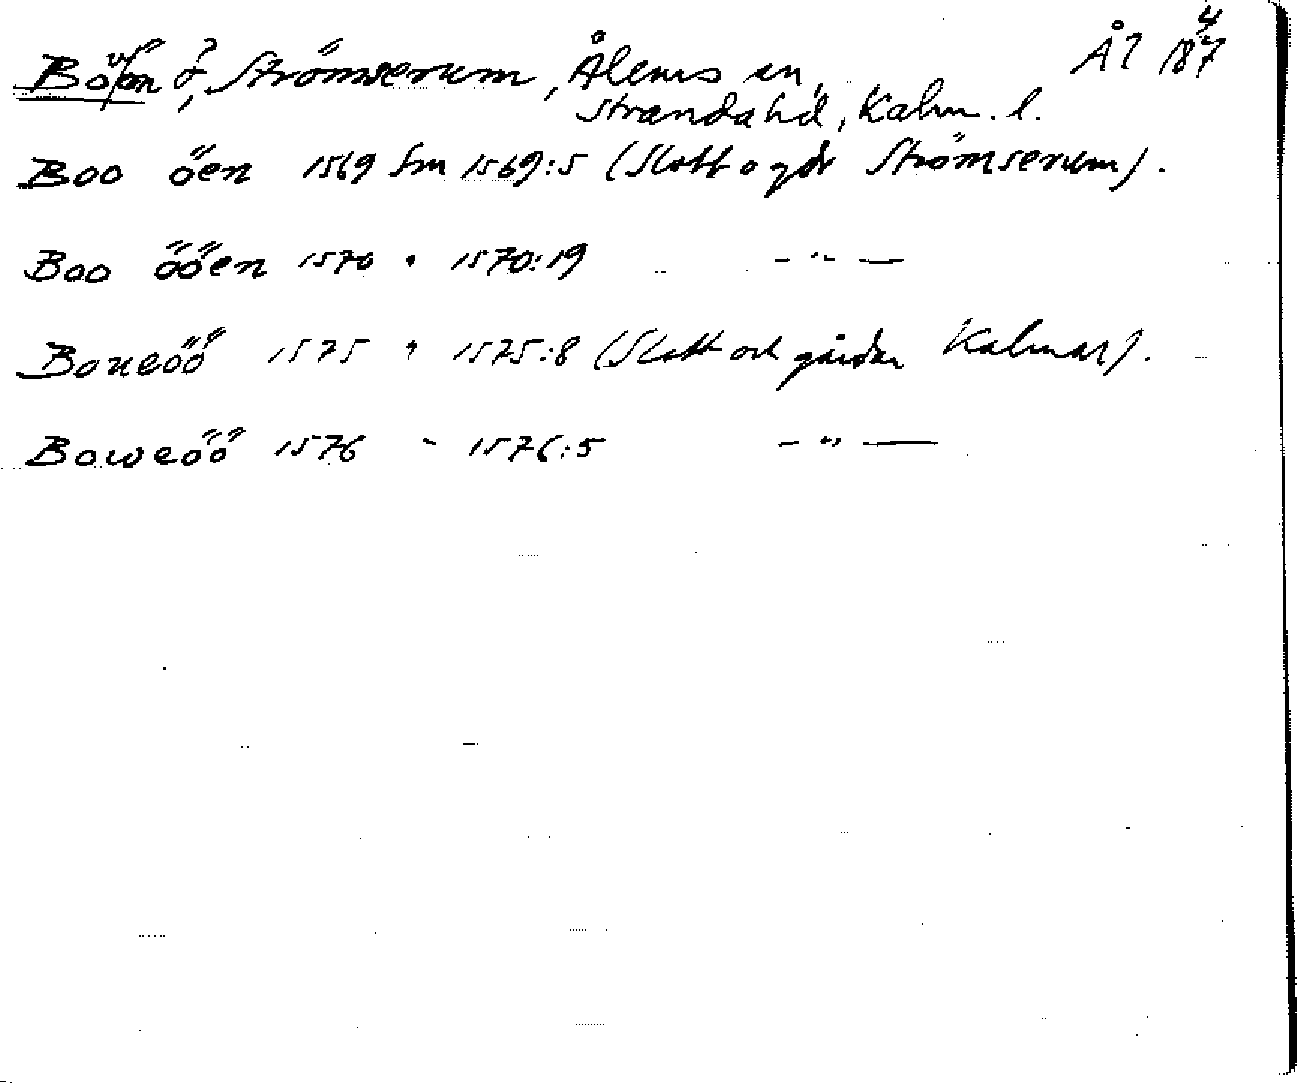 Strömserum, Ålems sn, Ål 187
Strandahd, Kalm. l.
Boo öen 1569 Sm 1569:5 (Slott o gdr Strömserum).
Boo ööen 1570 " 1570:19 — " —
Boneöö 1575 " 1575:8 (Slott och gårdar Kalmar).
Boweöö 1576 " 1576:5 — " —